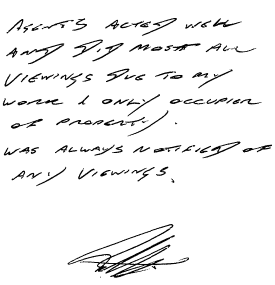 AGENTS ACTED WELL
AND DID MOST ALL
VIEWINGS DUE TO MY
WORK & ONLY OCCUPIER
OF PROPERTY.
WAS ALWAYS NOTIFIED OF
ANY VIEWINGS.